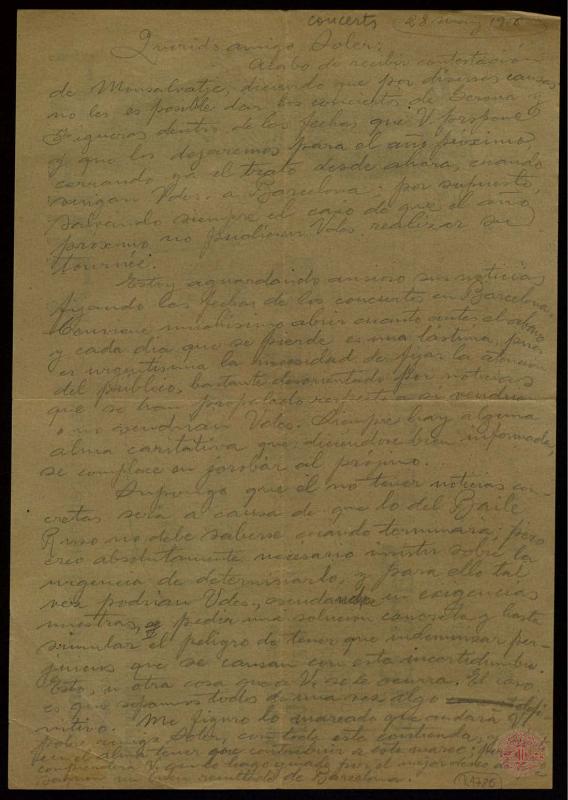 concerts 28 1916
Querido amigo Soler:
Acabo de recibir contestación
de Monsalvatje, diciendo que por diversas causas
no les es posible dar los conciertos de Gerona y
Figueras dentro de las fechas que V. propone
y que los dejaremos para el año próximo,
cerrando ya el trato desde ahora, cuando
vengan Vdes. a Barcelona; por supuesto,
salvando siempre el caso de que el año
próximo no pudieran Vdes realizar su
tournée.
Estoy aguardando ansioso sus noticias
fijando las fechas de los conciertos en Barcelona.
Conviene muchísimo abrir cuanto antes el abono
y cada día que se pierde es una lástima, pues
es urgentísima la necesidad de fijar la atención
del público, bastante desorientado por noticias
que se han propalado respecto a si vendrían
o no vendrían Vdes. Siempre hay alguna
alma caritativa que, diciéndose bien informada,
se complace en jorobar al prójimo.
Supongo que el no tener noticias con-
cretas será a causa de que lo del Baile
Ruso no debe saberse cuándo terminará, pero
creo absolutamente necesario insistir sobre la
urgencia de determinarlo, y para ello tal
vez podrían Vdes, escudándose en exigencias
nuestras, pedir una solución concreta y hasta
simular el peligro de tener que indemnizar per-
juicios que se causan con esta incertidumbre.
Esto, u otra cosa que a V. se le ocurra. El caso
es que sepamos todos de una vez algo defi-
nitivo. Me figuro lo mareado que andará el
pobre amigo Soler, con toda esta contienda, y
en el alma tener que contribuir a este mareo;
comprenderá V. que lo hago guiado por el mejor deseo
un buen resultado de Barcelona.